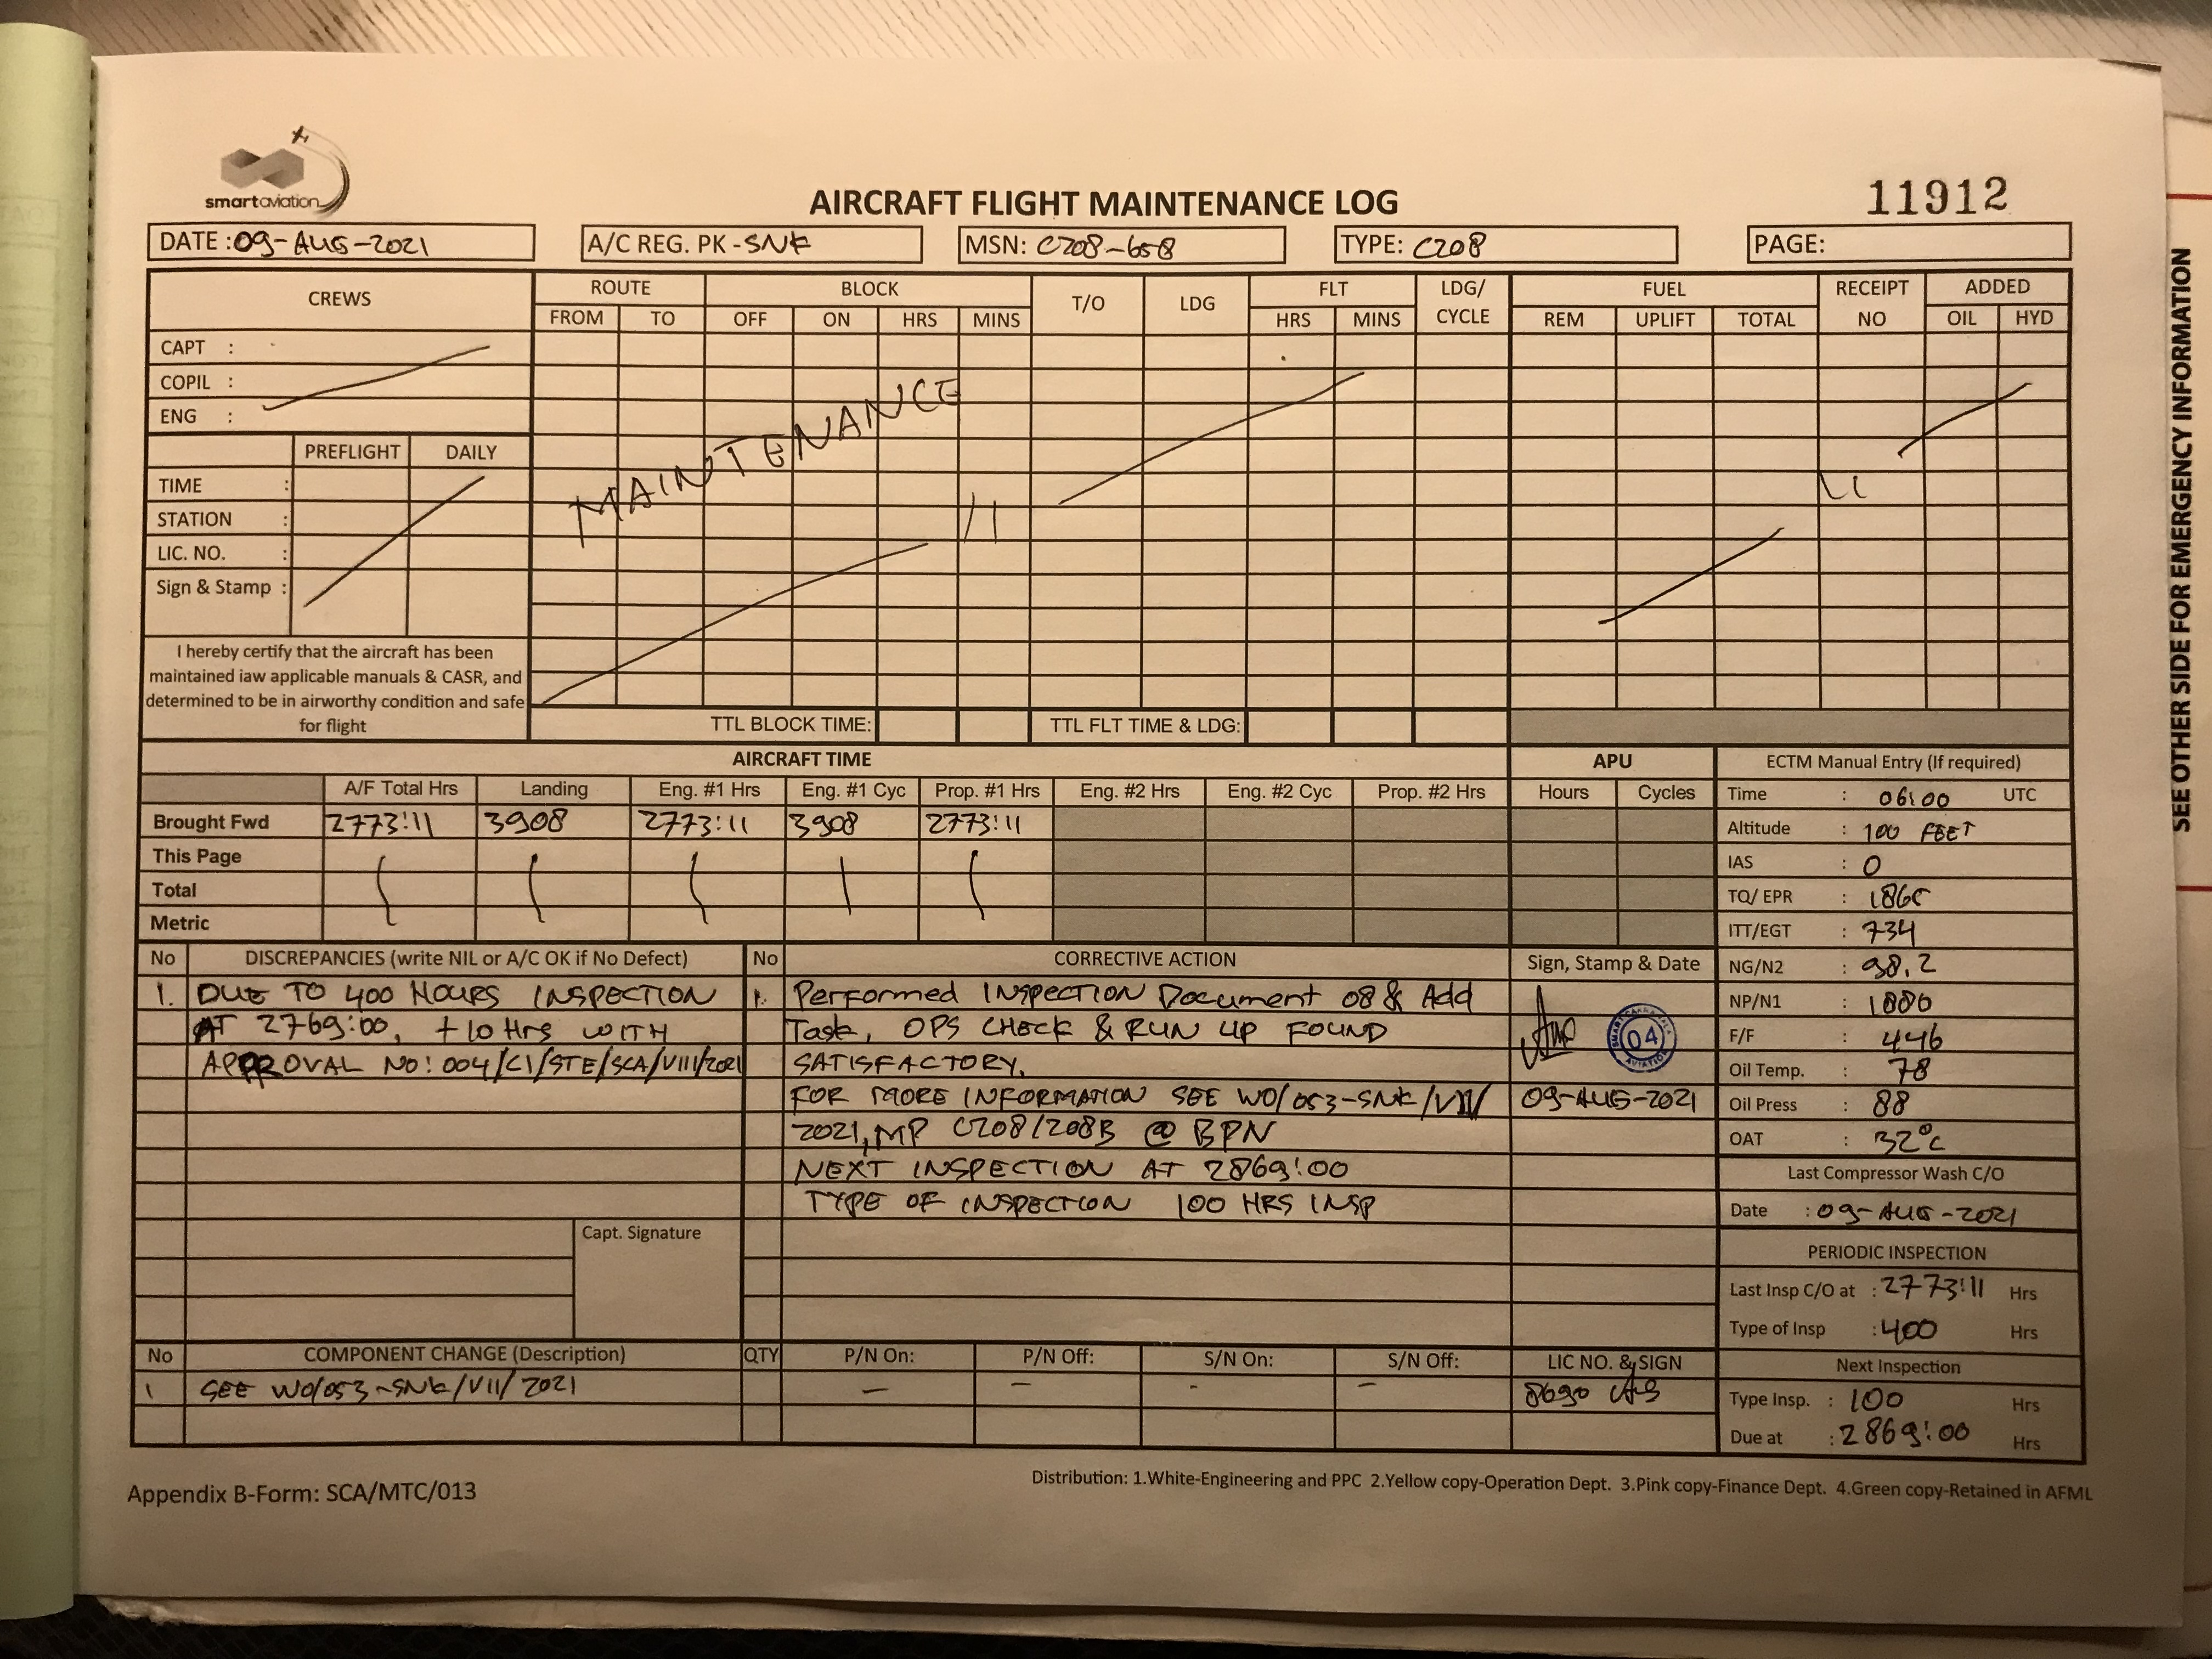 smartaviation
AIRCRAFT FLIGHT MAINTENANCE LOG
11912
DATE : 09-AUG-2021
A/C REG. PK - SNK
MSN: C208-658
TYPE: C208
PAGE:
CREWS
ROUTE BLOCK T/O LDG FLT LDG/ CYCLE FUEL RECEIPT NO ADDED
FROM TO OFF ON HRS MINS HRS MINS REM UPLIFT TOTAL OIL HYD
CAPT :
COPIL :
ENG :
MAINTENANCE
PREFLIGHT DAILY
TIME :
STATION :
LIC. NO. :
Sign & Stamp :
I hereby certify that the aircraft has been
maintained iaw applicable manuals & CASR, and
determined to be in airworthy condition and safe
for flight
TTL BLOCK TIME: TTL FLT TIME & LDG:
AIRCRAFT TIME APU
A/F Total Hrs Landing Eng. #1 Hrs Eng. #1 Cyc Prop. #1 Hrs Eng. #2 Hrs Eng. #2 Cyc Prop. #2 Hrs Hours Cycles
Brought Fwd 2773:11 3908 2773:11 3908 2773:11
This Page
Total
Metric
ECTM Manual Entry (If required)
Time : 06:00 UTC
Altitude : 100 FEET
IAS : 0
TQ/ EPR :
ITT/EGT : 734
NG/N2 : 98.2
NP/N1 :
F/F : 446
Oil Temp. : 78
Oil Press : 88
OAT : 32°C
Last Compressor Wash C/O
Date : 09-AUG-2021
PERIODIC INSPECTION
Last Insp C/O at : 2773:11 Hrs
Type of Insp : 400 Hrs
Next Inspection
Type Insp. : 100 Hrs
Due at : 2869:00 Hrs
No DISCREPANCIES (write NIL or A/C OK if No Defect)
1. DUE TO 400 HOURS INSPECTION
AT 2769:00, +10 Hrs WITH
APPROVAL NO: 004/CI/STE/SCA/VIII/2021
Capt. Signature
No CORRECTIVE ACTION
1. Performed INSPECTION Document 08 & Add
Task, OPS CHECK & RUN UP FOUND
SATISFACTORY.
FOR MORE INFORMATION SEE WO/053-SNK/VII/
2021, MP C208/208B @ BPN
NEXT INSPECTION AT 2869:00
TYPE OF INSPECTION 100 HRS INSP
Sign, Stamp & Date
04
AVIATION
09-AUG-2021
No COMPONENT CHANGE (Description) QTY P/N On: P/N Off: S/N On: S/N Off: LIC NO. & SIGN
1 SEE WO/053-SNK/VII/2021 — — - — 8690
Appendix B-Form: SCA/MTC/013
Distribution: 1.White-Engineering and PPC 2.Yellow copy-Operation Dept. 3.Pink copy-Finance Dept. 4.Green copy-Retained in AFML
SEE OTHER SIDE FOR EMERGENCY INFORMATION